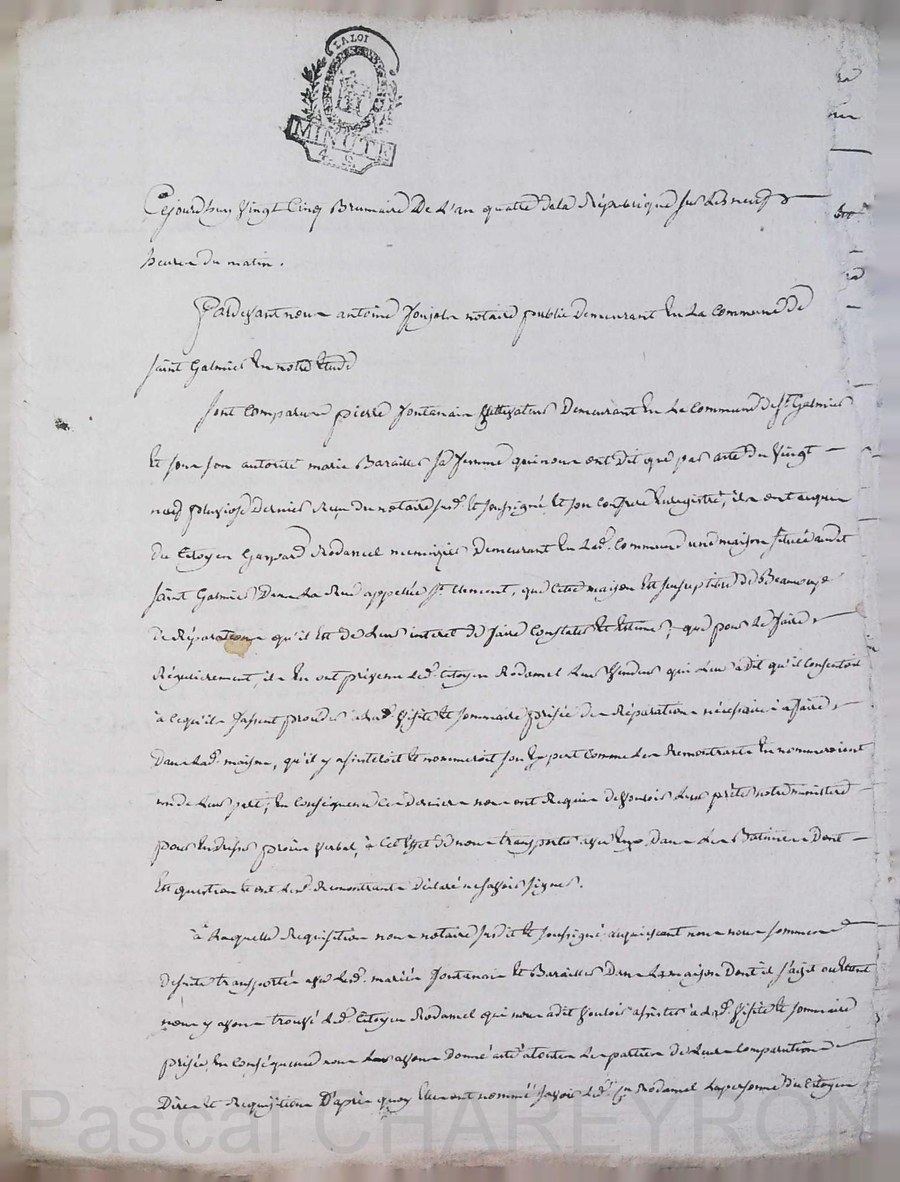 LA LOI
MINUTE
Cejourdhuy Vingt Cinq Brumaire De L'an quatre dela République sur Les neuf
heures du matin.
Pardevant nous antoine notaire public Demeurant En La Commune De
saint Galmier En notre Etude
sont Comparus pierre fontanain Cultivateur Demeurant En La Commune de St. Galmier
Et sous son autorité marie Barailler sa femme qui nous ont Dit que par acte du Vingt
neuf pluviose Dernier Reçu du notaire susd. Et soussigné Et son Confrere Enregistré, ils ont acquis
du Citoyen Gaspard Rodamel menuizier Demeurant En Lad. Commune une maison située audit
saint Galmier Dans La Rue appellée St. Vincent, que Cette maison Est susceptible de Beaucoup
de Réparations qu'il Est de Leur interet de faire Constater Et Estimer, que pour Le faire
Régulierement, ils En ont prévenu Led. Citoyen Rodamel Leur Vendeur qui Leur a dit qu'il Consentoit
à Ce qu'ils fassent proceder à Lad. Visite Et sommaire prisée des Réparations nécessaires à faire
Dans Lad. maison, qu'il y assisteroit Et nommeroit son Expert Comme Les Remontrants En nommeroient
un de Leur part, En Conséquence Ces Derniers nous ont Requis de Vouloir Leur prêter notre ministere
pour En Dresser procès Verbal, à Cet Effet de nous transporter avec Eux Dans Les Batiments Dont
Est question Et ont Les Remontrants Déclaré ne savoir signer.
à Laquelle Requisition nous notaire susdit Et soussigné acquiesçant nous nous sommes
de suite transportés avec Led. mariés fontanain Et Barailler Dans La maison Dont il s'agit ou Etant
nous y avons trouvé Led. Citoyen Rodamel qui nous a dit Vouloir assister à Lad. Visite Et sommaire
prisée, En Conséquence nous avons Donné acte à toutes Les parties de Leurs Comparutions
Dires Et Requisition D'après quoy Elles ont nommé savoir Led. Cn. Rodamel La personne du Citoyen
Pascal CHAREYRON